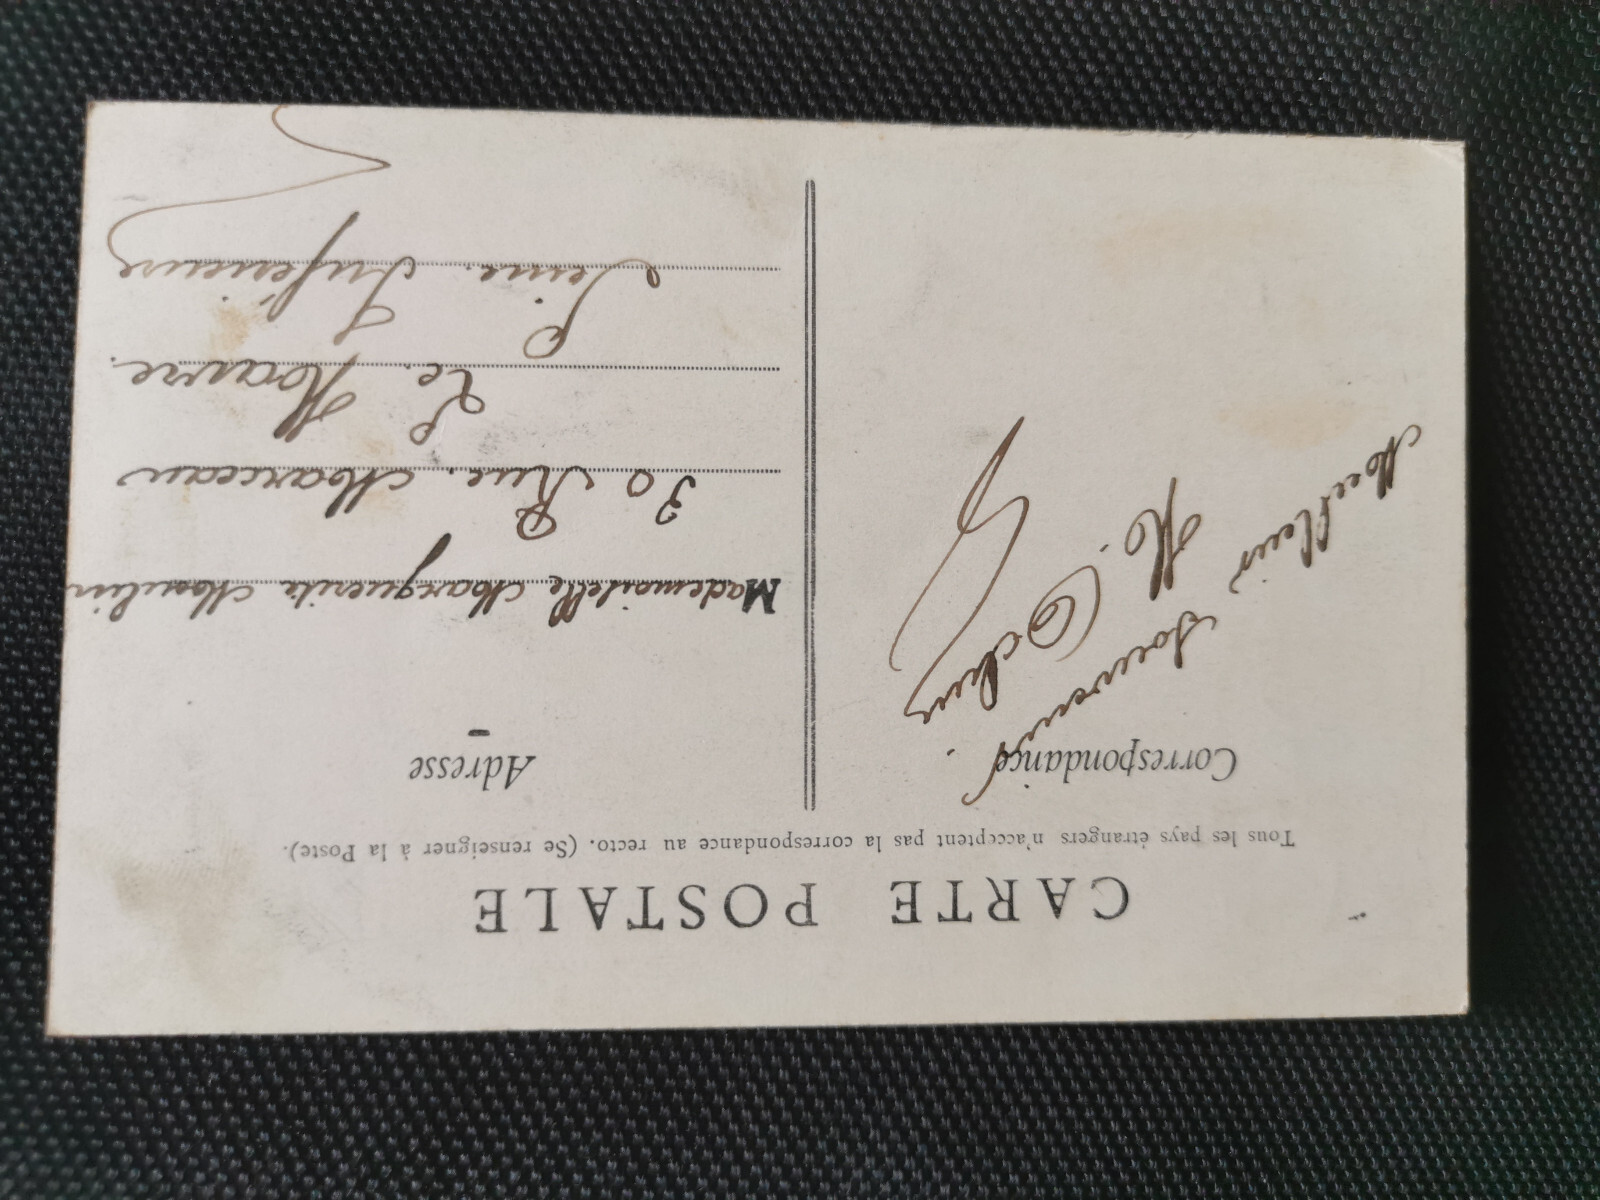 CARTE POSTALE
Tous les pays étrangers n'acceptent pas la correspondance au recto. (Se renseigner à la Poste).
Correspondance
Meilleurs Souvenirs.
H.
Adresse
Mademoiselle Marguerite Moulin
30 Rue. Marceau
Le. Havre.
Seine. Inférieure